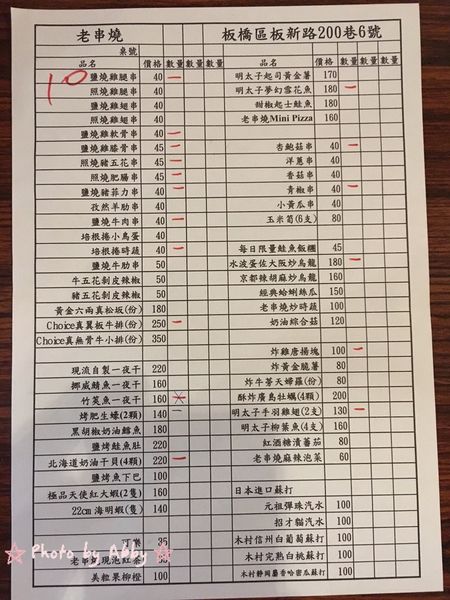 老串燒
板橋區板新路200巷6號
桌號
品名 價格 數量 數量 數量
品名 價格 數量 數量 數量
10
鹽燒雞腿串 40 一
照燒雞腿串 40
照燒雞翅串 40
鹽燒雞翅串 40
鹽燒雞軟骨串 45 一
鹽燒雞膝骨串 45 一
照燒豬五花串 45 一
照燒肥腸串 45 一
鹽燒豬菲力串 40 一
孜然羊肋串 40
鹽燒牛肉串 40 一
培根捲小鳥蛋 40
培根捲時蔬 40 一
鹽燒牛肋串 50
牛五花剝皮辣椒 50
豬五花剝皮辣椒 50
黃金六兩真松坂(份) 180
Choice真翼板牛排(份) 250 一
Choice真無骨牛小排(份) 350
現流自製一夜干 220
挪威鯖魚一夜干 160
竹筴魚一夜干 160
烤肥生蠔(2顆) 140 一
黑胡椒奶油鱈魚 160
鹽烤鮭魚肚 220
北海道奶油干貝(4顆) 220 一
鹽烤魚下巴 100
極品天使紅大蝦(2隻) 160
22cm海明蝦(隻) 140
35
老串燒現泡紅茶 35
美粒果柳橙 100
明太子起司黃金薯 170
明太子夢幻雪花魚 180 一
甜椒起士鮭魚 180
老串燒Mini Pizza 160
杏鮑菇串 40 一
洋蔥串 40
香菇串 40
青椒串 40 一
小黃瓜串 40
玉米筍(6支) 80
每日限量鮭魚飯糰 45
水波蛋佐大阪炒烏龍 180 一
京都辣胡麻炒烏龍 160
經典蛤蜊絲瓜 150
老串燒炒時蔬 100
奶油綜合菇 120
炸雞唐揚塊 100 一
炸黃金脆薯 80
炸牛蒡天婦羅(份) 80
酥炸廣島牡蠣(4顆) 200
明太子手羽雞翅(2支) 130 一
明太子柳葉魚(4支) 160
紅酒糖漬蕃茄 80
老串燒麻辣泡菜 60
日本進口蘇打
元祖彈珠汽水 100
招才貓汽水 100
木村信州白葡萄蘇打 100
木村完熟白桃蘇打 100
木村靜岡麝香哈密瓜蘇打 100
Photo by Abby